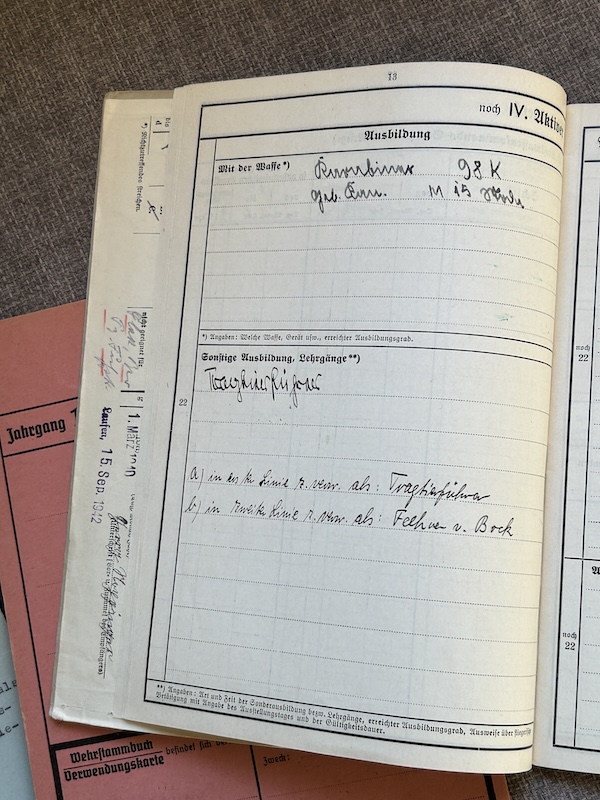 13
noch IV. Aktive
Ausbildung
Mit der Waffe*)
Karabiner 98 K
geb. Kan. M 15
*) Angaben: Welche Waffe, Gerät usw., erreichter Ausbildungsgrad.
Sonstige Ausbildung, Lehrgänge**)
Tragtierführer
22
a) in erster Linie z. verw. als: Tragtierführer
b) in zweiter Linie z. verw. als: Fahrer v. Bock
**) Angaben: Art und Zeit der Sonderausbildung bezw. Lehrgänge, erreichter Ausbildungsgrad, Ausweise über
Betätigung mit Angabe des Ausstellungstages und der Gültigkeitsdauer.
*) Nichtzutreffendes streichen.
nicht geeignet für
1. März 1940
Laufen, 15. Sep. 1942
Jahrgang 1
Wehrstammbuch
Verwendungskarte
befindet sich
Zweck:
noch
22
noch
22